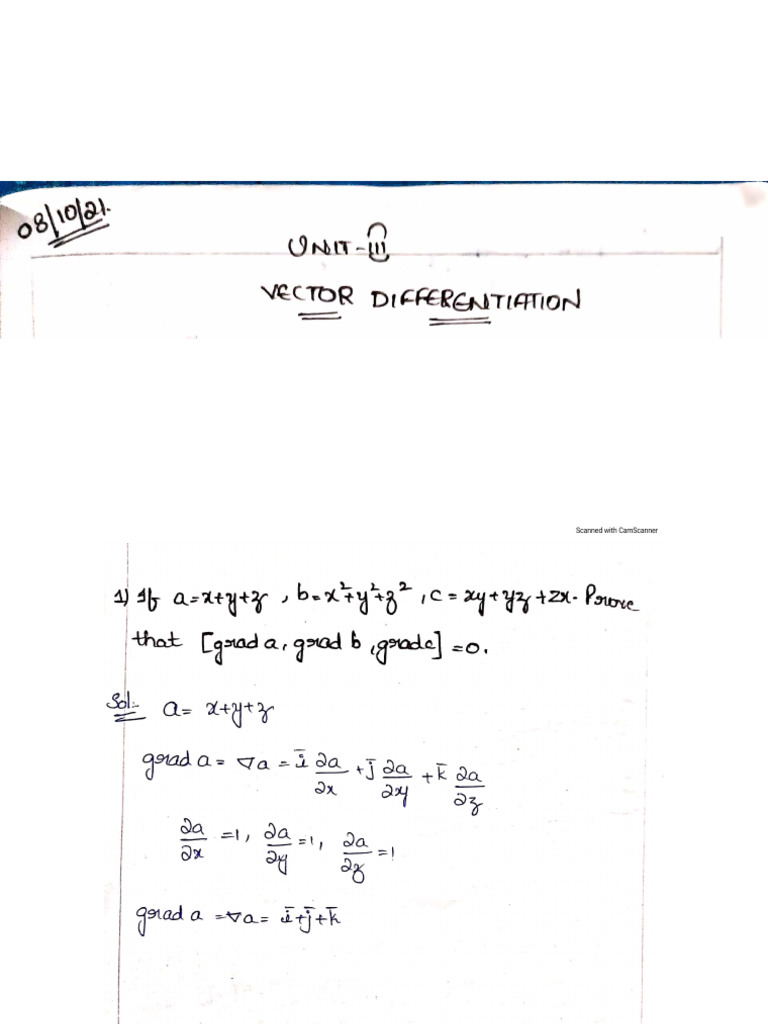 08/10/21.
UNIT-III
VECTOR DIFFERENTIATION
Scanned with CamScanner
1) If a=x+y+z, b=x²+y²+z², c=xy+yz+zx. Prove
that [grad a, grad b, grad c] =0.
Sol:- a= x+y+z
grad a = ∇a = i̅ ∂a/∂x + j̅ ∂a/∂y + k̅ ∂a/∂z
∂a/∂x =1, ∂a/∂y =1, ∂a/∂z =1
grad a =∇a= i̅+j̅+k̅